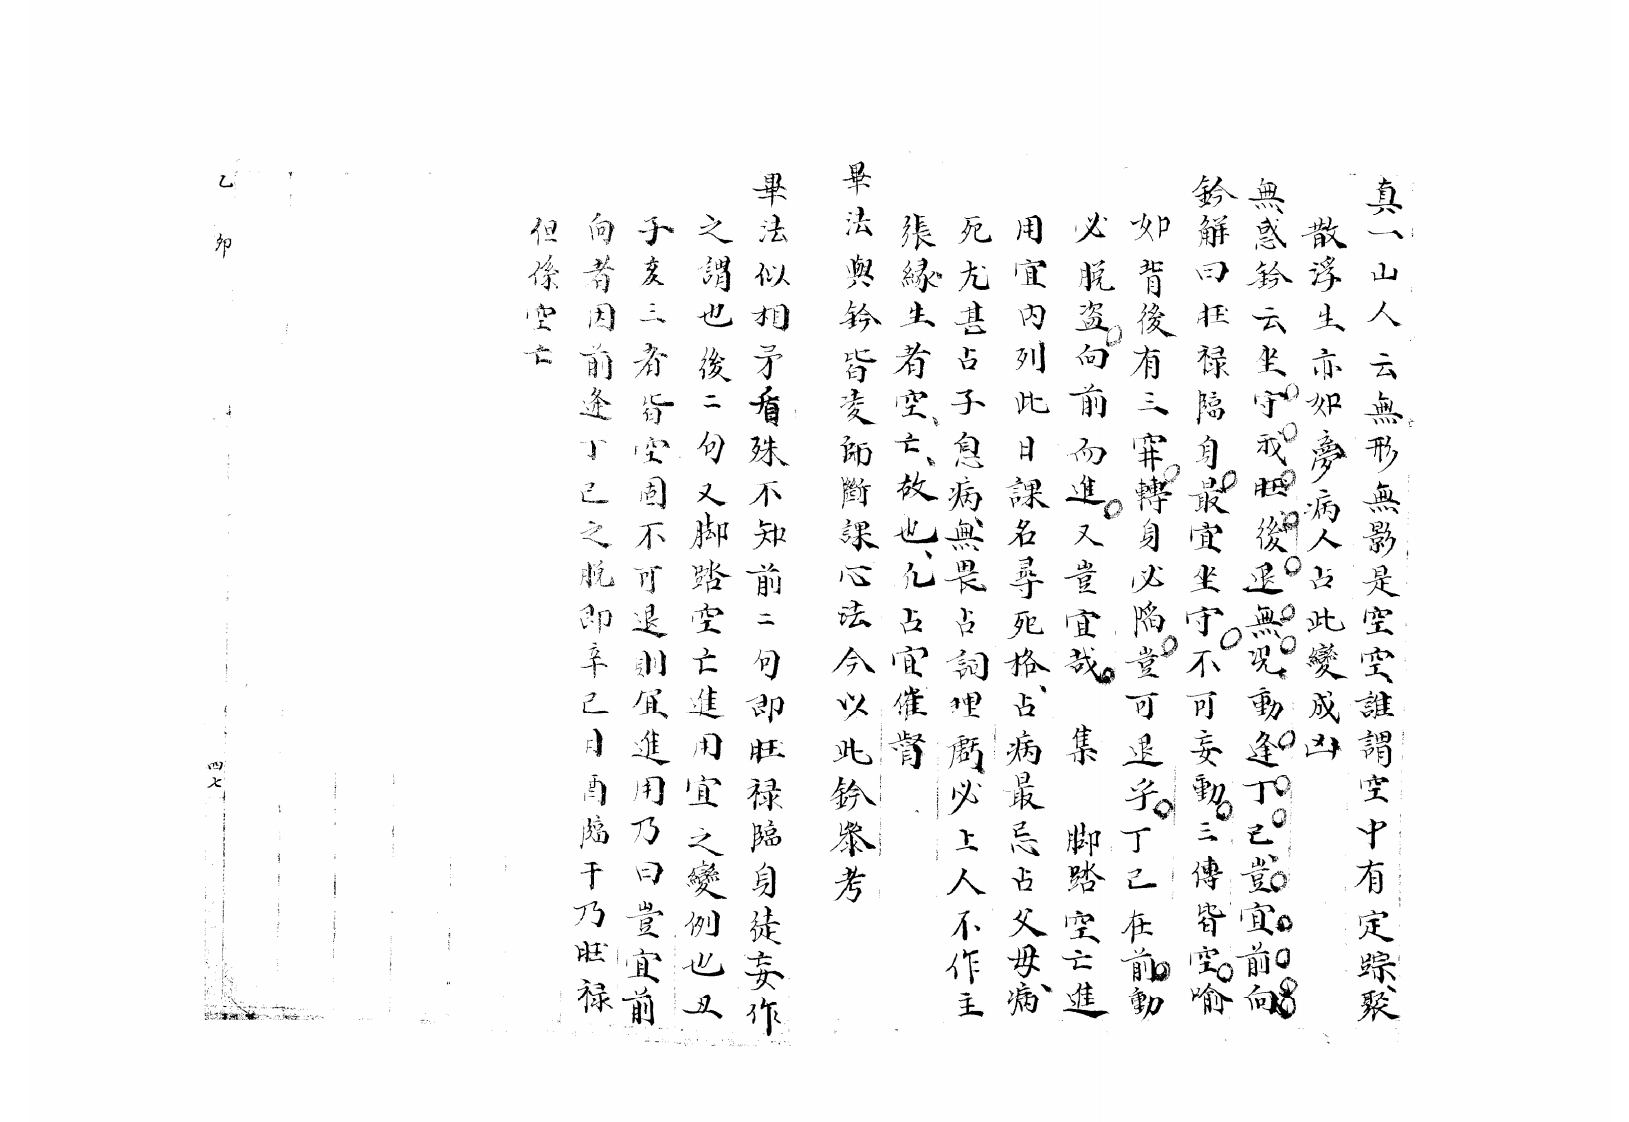 真一山人云無形無影是空空誰謂空中有定踪聚
散浮生亦如夢病人占此變成凶
無惑鈐云坐守我旺後退無況動逢丁已豈宜前向
鈐解曰旺禄臨身最宜坐守不可妄動三傳皆空喻
如背後有三穽轉身必陷豈可退乎丁已在前動
必脱盗向前而進又豈宜哉 集 脚踏空亡進
用宜内列此日課名尋死格占病最忌占父母病
死尤甚占子息病無畏占詞理虧必上人不作主
張縁生者空亡故也凢占宜催督
畢法與鈐皆凌師斷課心法今以此鈐叅考
畢法似相矛盾殊不知前二句即旺禄臨身徒妄作
之謂也後二句又脚踏空亡進用宜之變例也丑
子亥三者皆空固不可退則宜進用乃曰豈宜前
向者因前逢丁已之脱即辛已月酉臨干乃旺禄
但係空亡
乙卯
四七